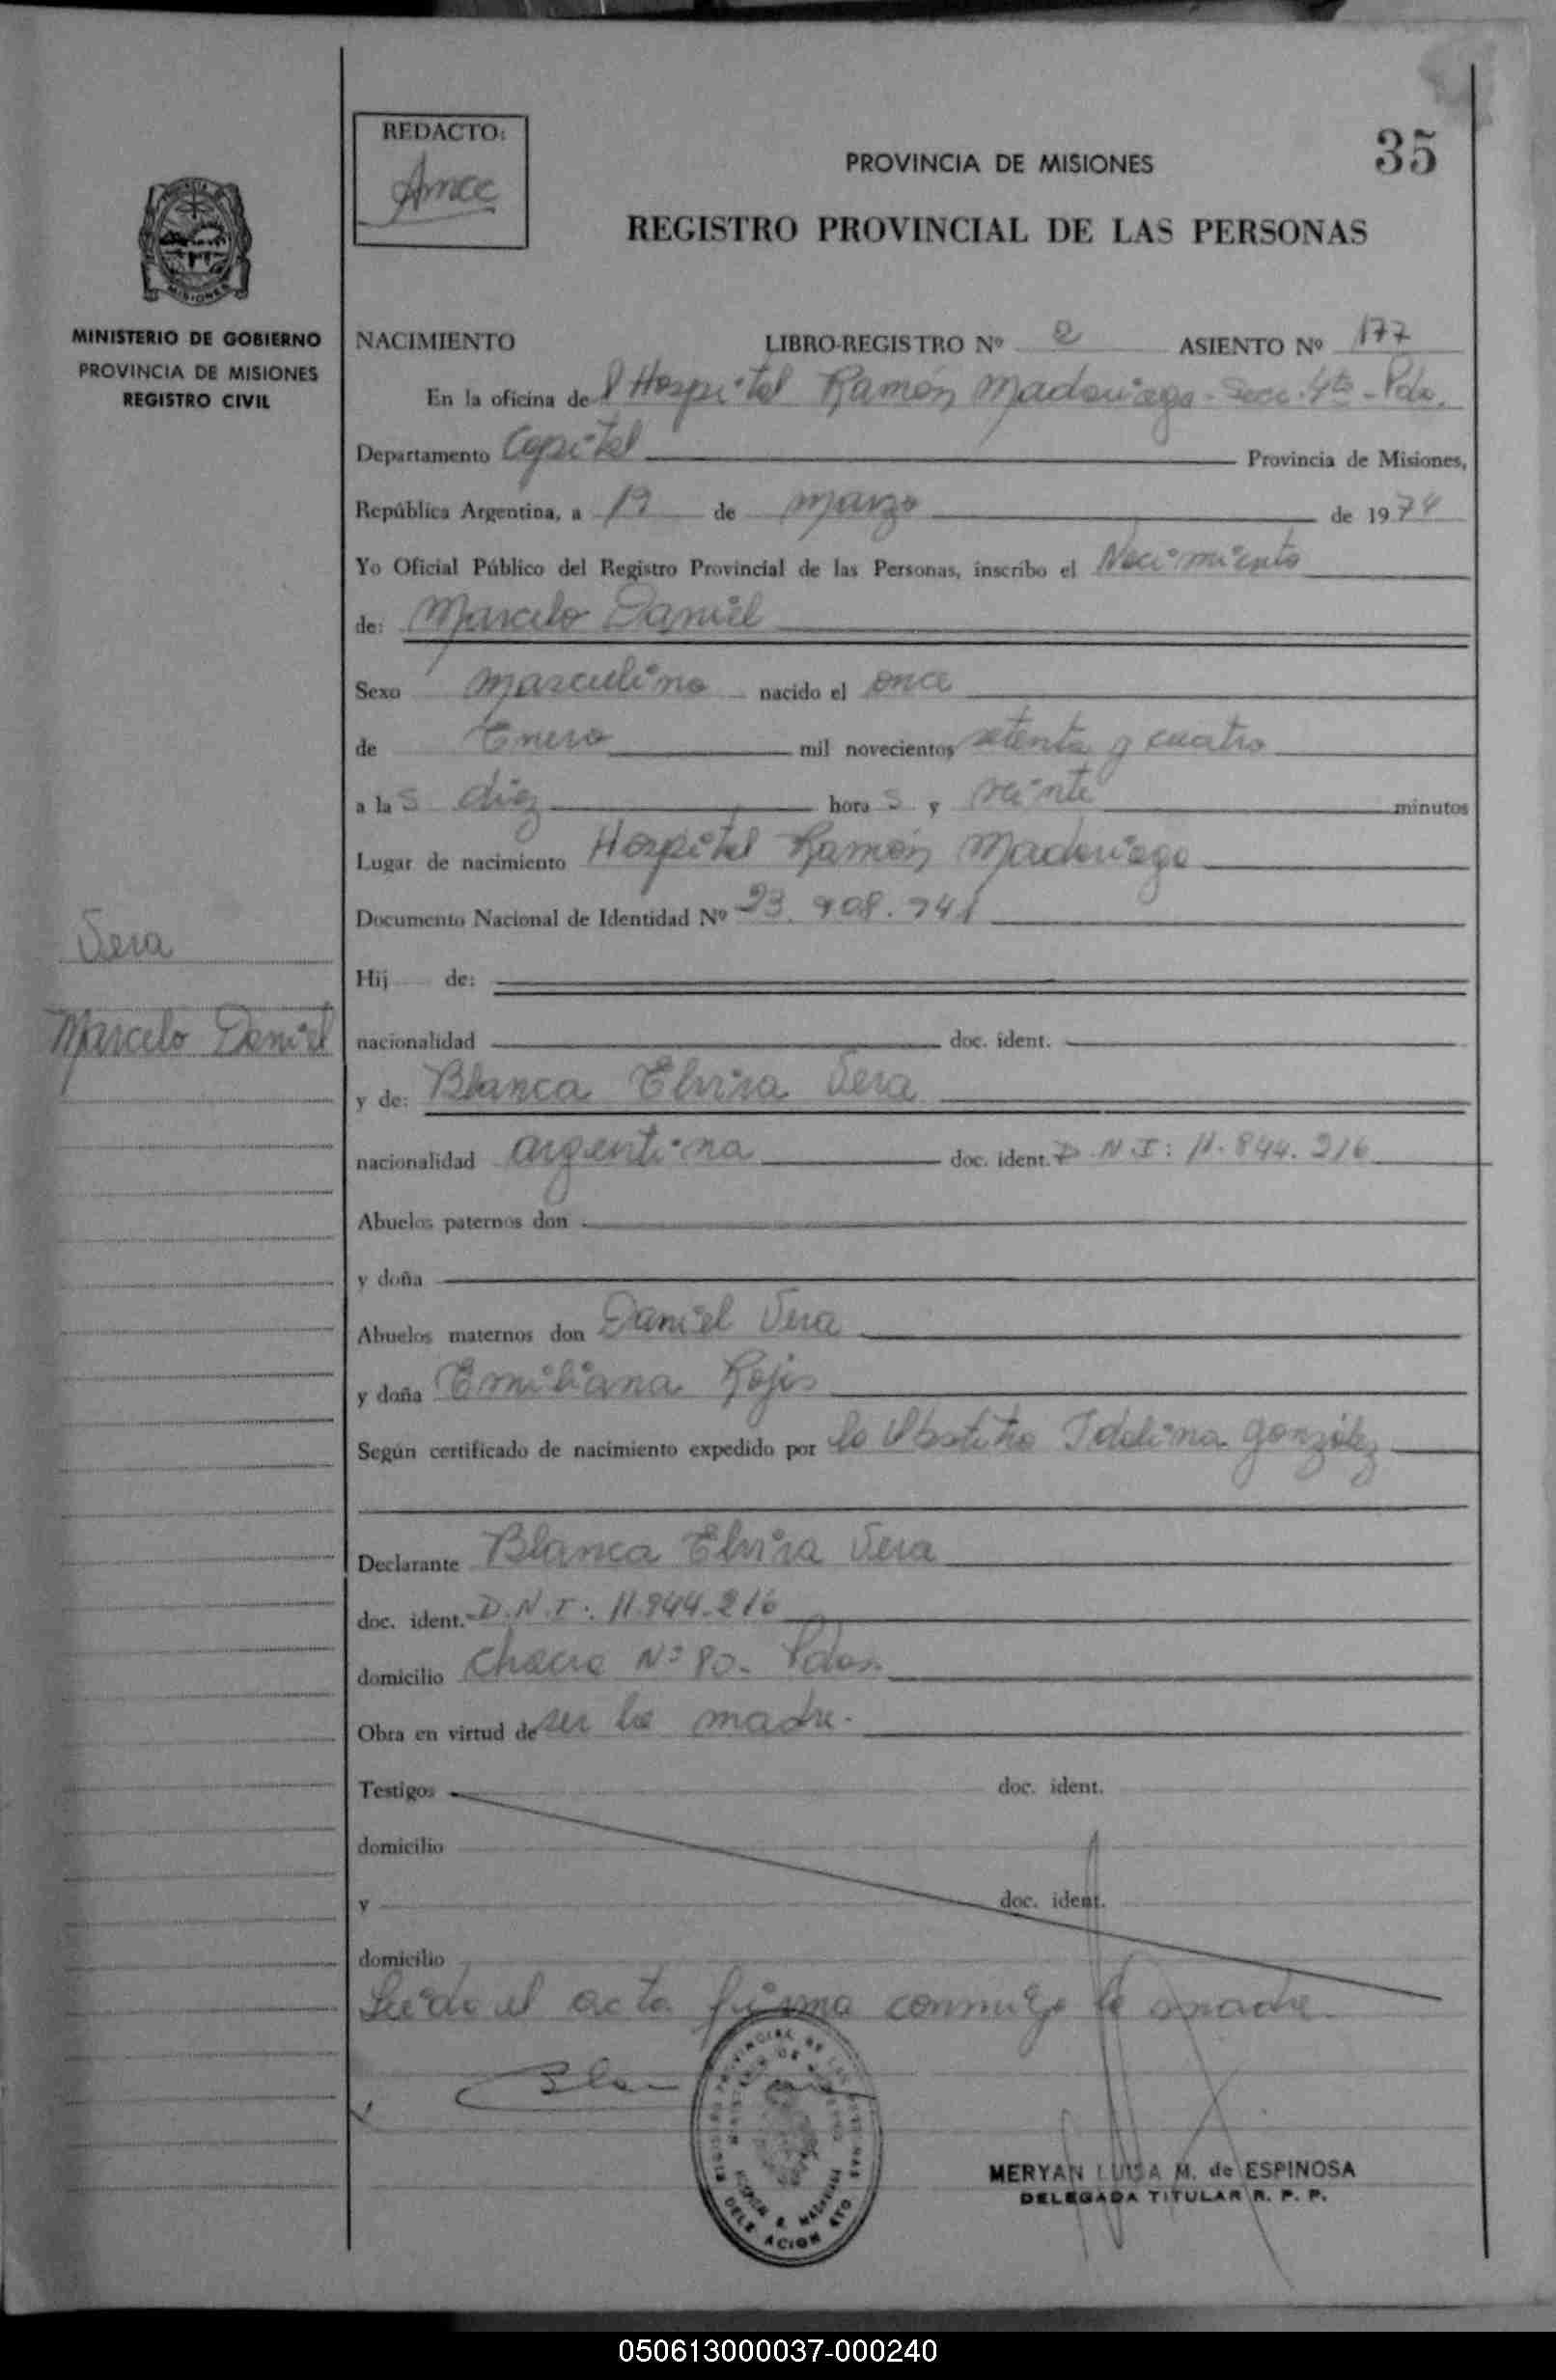 REDACTO:
PROVINCIA DE MISIONES
35
REGISTRO PROVINCIAL DE LAS PERSONAS
MISIONES
MINISTERIO DE GOBIERNO
PROVINCIA DE MISIONES
REGISTRO CIVIL
NACIMIENTO LIBRO-REGISTRO Nº 2 ASIENTO Nº 177
En la oficina de l Hospital Ramón Madariaga - Secc. 4ta - Pdas.
Departamento Capital Provincia de Misiones,
República Argentina, a 19 de marzo de 1974
Yo Oficial Público del Registro Provincial de las Personas, inscribo el Nacimiento
de: Marcelo Daniel
Sexo masculino nacido el once
de Enero mil novecientos setenta y cuatro
a las diez horas y veinte minutos
Lugar de nacimiento Hospital Ramón Madariaga
Documento Nacional de Identidad Nº 23.908.741
Vera
Marcelo Daniel
Hij de:
nacionalidad doc. ident.
y de: Blanca Elvira Vera
nacionalidad argentina doc. ident. D.N.I: 11.844.216
Abuelos paternos don
y doña
Abuelos maternos don Daniel Vera
y doña Emiliana Rojas
Según certificado de nacimiento expedido por la Obstetra Idelina González
Declarante Blanca Elvira Vera
doc. ident. D.N.I: 11.844.216
domicilio Chacra Nº 80. Pdas.
Obra en virtud de ser la madre.
Testigos doc. ident.
domicilio
y doc. ident.
domicilio
Leída el acta firma conmigo la madre.
MERYAN LUISA M. de ESPINOSA
DELEGADA TITULAR R. P. P.
050613000037-000240